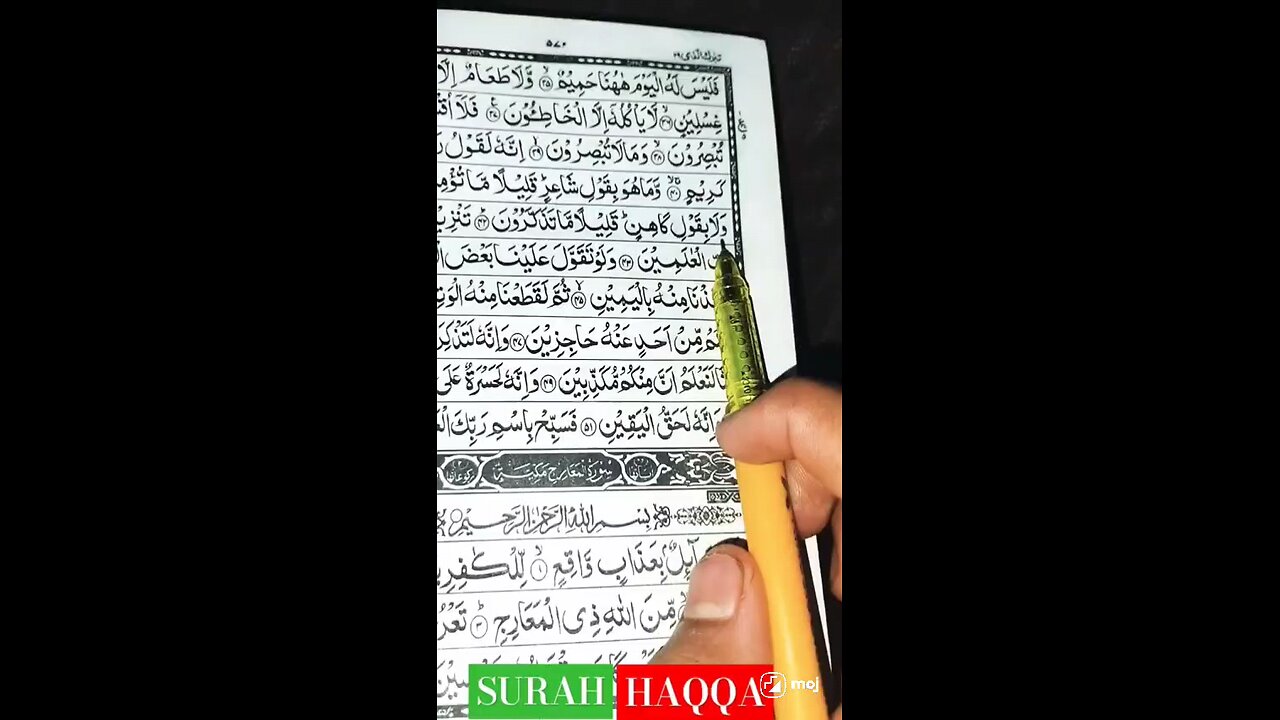 تبارك الذي ٢٩
٥٧٠
فَلَيْسَ لَهُ الْيَوْمَ هٰهُنَا حَمِيْمٌ ۙ ﴿۳۵﴾ وَّلَا طَعَامٌ اِلَّا
غِسْلِيْنٍ ۙ ﴿۳۶﴾ لَّا يَاْكُلُهٗۤ اِلَّا الْخَاطِـُٔوْنَ ﴿۳۷﴾ فَلَاۤ
تُبْصِرُوْنَ ۙ ﴿۳۸﴾ وَمَا لَا تُبْصِرُوْنَ ۙ ﴿۳۹﴾ اِنَّهٗ لَقَوْلُ
كَرِيْمٍ ۙ ﴿۴۰﴾ وَّمَا هُوَ بِقَوْلِ شَاعِرٍ ؕ قَلِيْلًا مَّا
وَلَا بِقَوْلِ كَاهِنٍ ؕ قَلِيْلًا مَّا تَذَكَّرُوْنَ ؕ ﴿۴۲﴾
الْعٰلَمِيْنَ ﴿۴۳﴾ وَلَوْ تَقَوَّلَ عَلَيْنَا بَعْضَ
مِنْهُ بِالْيَمِيْنِ ۙ ﴿۴۵﴾ ثُمَّ لَقَطَعْنَا مِنْهُ
مِّنْ اَحَدٍ عَنْهُ حَاجِزِيْنَ ﴿۴۷﴾ وَاِنَّهٗ
لَنَعْلَمُ اَنَّ مِنْكُمْ مُّكَذِّبِيْنَ ﴿۴۹﴾ وَاِنَّهٗ لَحَسْرَةٌ عَلَى
وَاِنَّهٗ لَحَقُّ الْيَقِيْنِ ﴿۵۱﴾ فَسَبِّحْ بِاسْمِ رَبِّكَ
سورة المعارج مكية
بِسْمِ اللّٰهِ الرَّحْمٰنِ الرَّحِيْمِ
بِعَذَابٍ وَّاقِعٍ ۙ ﴿۱﴾
مِّنَ اللّٰهِ ذِي الْمَعَارِجِ ؕ ﴿۳﴾
SURAH HAQQA
moj